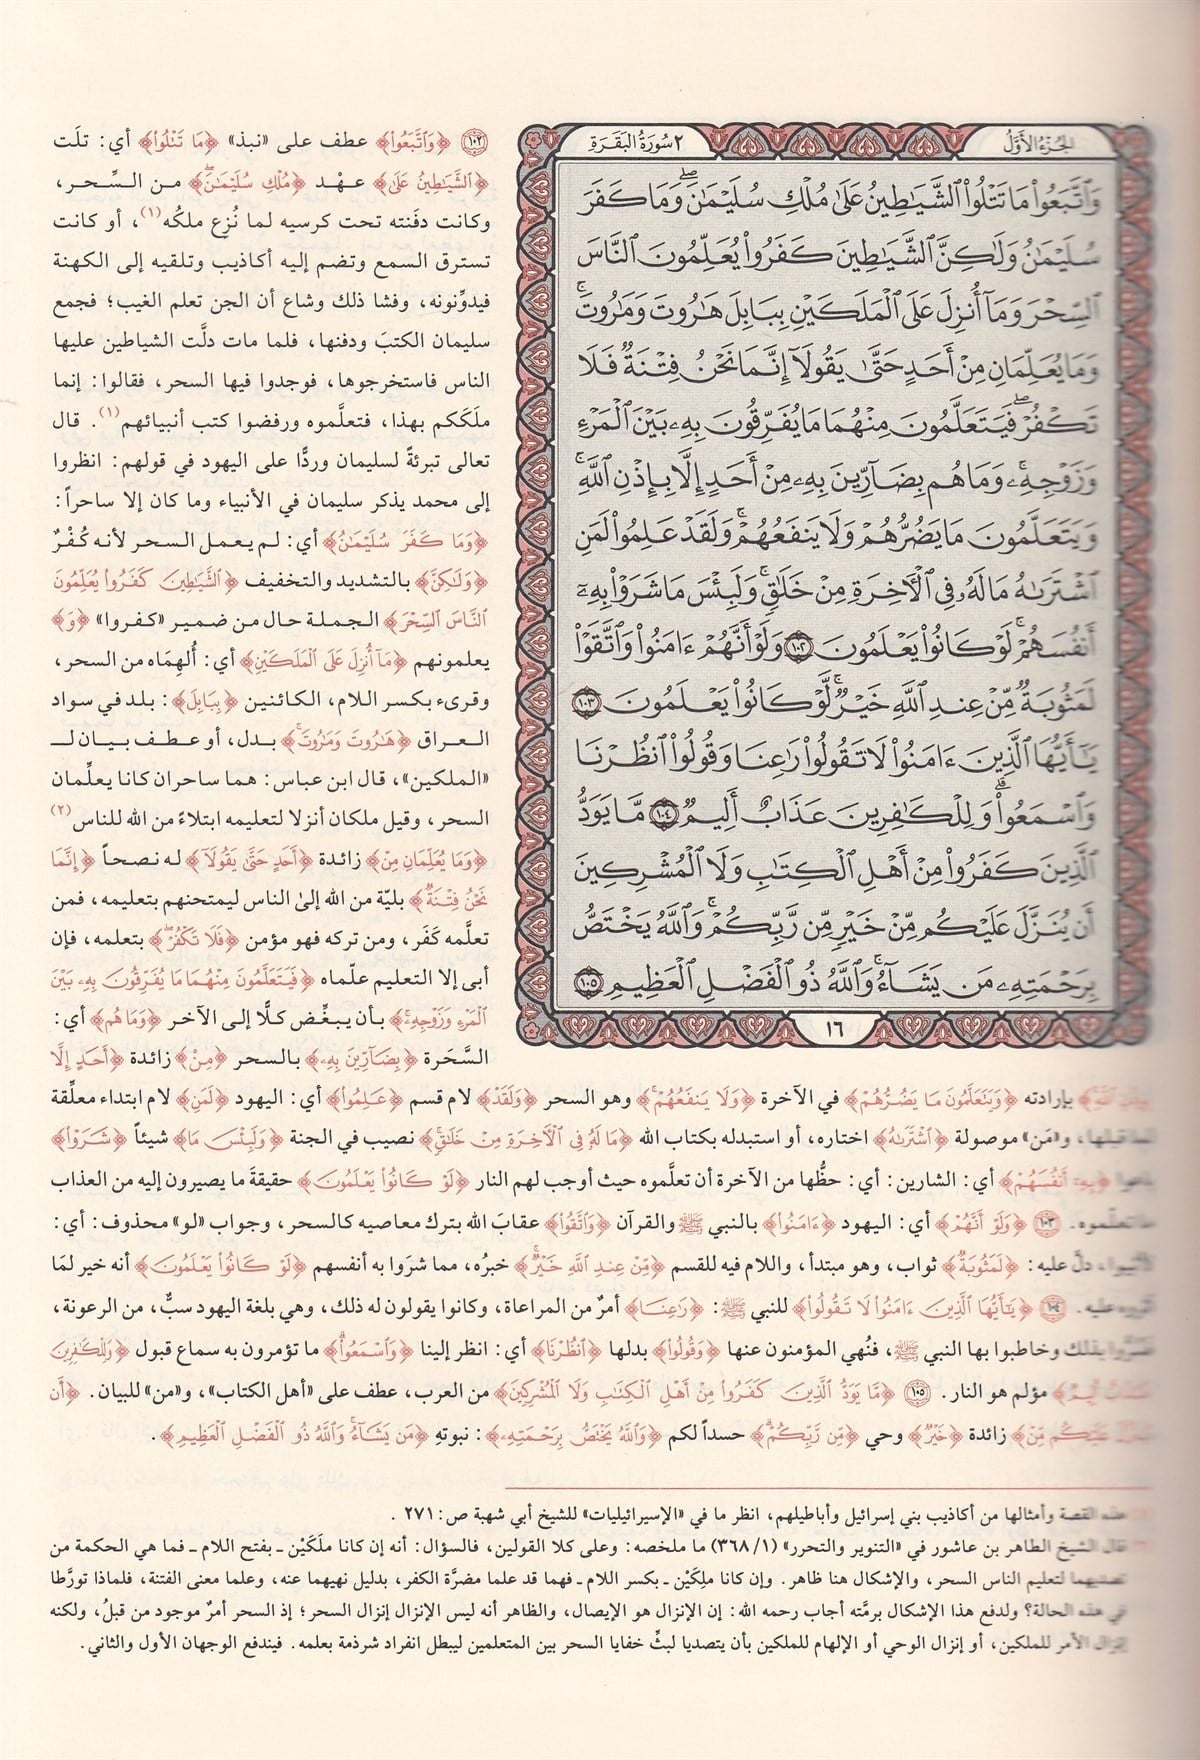 الجُزءُ الأَوَّلُ
٢ سُورَةُ البَقَرَةِ
وَاتَّبَعُوا۟ مَا تَتْلُوا۟ الشَّيَاطِينُ عَلَىٰ مُلْكِ سُلَيْمَـٰنَ ۖ وَمَا كَفَرَ
سُلَيْمَـٰنُ وَلَـٰكِنَّ الشَّيَاطِينَ كَفَرُوا۟ يُعَلِّمُونَ النَّاسَ
السِّحْرَ وَمَآ أُنزِلَ عَلَى الْمَلَكَيْنِ بِبَابِلَ هَـٰرُوتَ وَمَـٰرُوتَ ۚ
وَمَا يُعَلِّمَانِ مِنْ أَحَدٍ حَتَّىٰ يَقُولَآ إِنَّمَا نَحْنُ فِتْنَةٌ فَلَا
تَكْفُرْ ۖ فَيَتَعَلَّمُونَ مِنْهُمَا مَا يُفَرِّقُونَ بِهِۦ بَيْنَ الْمَرْءِ
وَزَوْجِهِۦ ۚ وَمَا هُم بِضَآرِّينَ بِهِۦ مِنْ أَحَدٍ إِلَّا بِإِذْنِ اللَّهِ ۚ
وَيَتَعَلَّمُونَ مَا يَضُرُّهُمْ وَلَا يَنفَعُهُمْ ۚ وَلَقَدْ عَلِمُوا۟ لَمَنِ
اشْتَرَىٰهُ مَا لَهُۥ فِى الْـَٔاخِرَةِ مِنْ خَلَـٰقٍ ۚ وَلَبِئْسَ مَا شَرَوْا۟ بِهِۦٓ
أَنفُسَهُمْ ۚ لَوْ كَانُوا۟ يَعْلَمُونَ ١٠٢ وَلَوْ أَنَّهُمْ ءَامَنُوا۟ وَاتَّقَوْا۟
لَمَثُوبَةٌ مِّنْ عِندِ اللَّهِ خَيْرٌ ۖ لَّوْ كَانُوا۟ يَعْلَمُونَ ١٠٣
يَـٰٓأَيُّهَا الَّذِينَ ءَامَنُوا۟ لَا تَقُولُوا۟ رَٰعِنَا وَقُولُوا۟ انظُرْنَا
وَاسْمَعُوا۟ ۗ وَلِلْكَـٰفِرِينَ عَذَابٌ أَلِيمٌ ١٠٤ مَّا يَوَدُّ
الَّذِينَ كَفَرُوا۟ مِنْ أَهْلِ الْكِتَـٰبِ وَلَا الْمُشْرِكِينَ
أَن يُنَزَّلَ عَلَيْكُم مِّنْ خَيْرٍ مِّن رَّبِّكُمْ ۗ وَاللَّهُ يَخْتَصُّ
بِرَحْمَتِهِۦ مَن يَشَآءُ ۚ وَاللَّهُ ذُو الْفَضْلِ الْعَظِيمِ ١٠٥
١٦
١٠٢ ﴿وَاتَّبَعُوا۟﴾ عطف على «نبذ» ﴿مَا تَتْلُوا۟﴾ أي: تلَت
﴿الشَّيَاطِينُ عَلَىٰ﴾ عهْد ﴿مُلْكِ سُلَيْمَـٰنَ ۖ﴾ من السِّحر،
وكانت دفَنته تحت كرسيه لما نُزِع ملكُه(١)، أو كانت
تسترق السمع وتضم إليه أكاذيب وتلقيه إلى الكهنة
فيدوِّنونه، وفشا ذلك وشاع أن الجن تعلم الغيب؛ فجمع
سليمان الكتبَ ودفنها، فلما مات دلَّت الشياطين عليها
الناس فاستخرجوها، فوجدوا فيها السحر، فقالوا: إنما
ملَكَكم بهذا، فتعلَّموه ورفضوا كتب أنبيائهم(١). قال
تعالى تبرئةً لسليمان وردًّا على اليهود في قولهم: انظروا
إلى محمد يذكر سليمان في الأنبياء وما كان إلا ساحراً:
﴿وَمَا كَفَرَ سُلَيْمَـٰنُ﴾ أي: لم يعمل السحر لأنه كُفْرٌ
﴿وَلَـٰكِنَّ﴾ بالتشديد والتخفيف ﴿الشَّيَاطِينَ كَفَرُوا۟ يُعَلِّمُونَ
النَّاسَ السِّحْرَ﴾ الجملة حال من ضمير «كفروا» ﴿وَ﴾
يعلمونهم ﴿مَآ أُنزِلَ عَلَى الْمَلَكَيْنِ﴾ أي: أُلهِمَاه من السحر،
وقرىء بكسر اللام، الكائنين ﴿بِبَابِلَ﴾: بلد في سواد
العراق ﴿هَـٰرُوتَ وَمَـٰرُوتَ ۚ﴾ بدل، أو عطف بيان لـ
«الملكين»، قال ابن عباس: هما ساحران كانا يعلِّمان
السحر، وقيل ملكان أنزلا لتعليمه ابتلاءً من الله للناس(٢)
﴿وَمَا يُعَلِّمَانِ مِنْ﴾ زائدة ﴿أَحَدٍ حَتَّىٰ يَقُولَآ﴾ له نصحاً ﴿إِنَّمَا
نَحْنُ فِتْنَةٌ﴾ بليّة من الله إلىٰ الناس ليمتحنهم بتعليمه، فمن
تعلَّمه كَفَر، ومن تركه فهو مؤمن ﴿فَلَا تَكْفُرْ ۖ﴾ بتعلمه، فإن
أبى إلا التعليم علّماه ﴿فَيَتَعَلَّمُونَ مِنْهُمَا مَا يُفَرِّقُونَ بِهِۦ بَيْنَ
الْمَرْءِ وَزَوْجِهِۦ ۚ﴾ بأن يبغِّض كلًّا إلى الآخر ﴿وَمَا هُم﴾ أي:
السَّحَرة ﴿بِضَآرِّينَ بِهِۦ﴾ بالسحر ﴿مِنْ﴾ زائدة ﴿أَحَدٍ إِلَّا
بإرادته ﴿وَيَتَعَلَّمُونَ مَا يَضُرُّهُمْ﴾ في الآخرة ﴿وَلَا يَنفَعُهُمْ ۚ﴾ وهو السحر ﴿وَلَقَدْ﴾ لام قسم ﴿عَلِمُوا۟﴾ أي: اليهود ﴿لَمَنِ﴾ لام ابتداء معلِّقة
قبلها، و«مَن» موصولة ﴿اشْتَرَىٰهُ﴾ اختاره، أو استبدله بكتاب الله ﴿مَا لَهُۥ فِى الْـَٔاخِرَةِ مِنْ خَلَـٰقٍ ۚ﴾ نصيب في الجنة ﴿وَلَبِئْسَ مَا﴾ شيئاً ﴿شَرَوْا۟﴾
﴿بِهِۦٓ أَنفُسَهُمْ﴾ أي: الشارين: أي: حظُّها من الآخرة أن تعلَّموه حيث أوجب لهم النار ﴿لَوْ كَانُوا۟ يَعْلَمُونَ﴾ حقيقةَ ما يصيرون إليه من العذاب
ما تعلَّموه. ١٠٣ ﴿وَلَوْ أَنَّهُمْ﴾ أي: اليهود ﴿ءَامَنُوا۟﴾ بالنبي ﷺ والقرآن ﴿وَاتَّقَوْا۟﴾ عقابَ الله بترك معاصيه كالسحر، وجواب «لو» محذوف: أي:
دلَّ عليه: ﴿لَمَثُوبَةٌ﴾ ثواب، وهو مبتدأ، واللام فيه للقسم ﴿مِّنْ عِندِ اللَّهِ خَيْرٌ ۖ﴾ خبرُه، مما شرَوا به أنفسهم ﴿لَوْ كَانُوا۟ يَعْلَمُونَ﴾ أنه خير لمَا
عليه. ١٠٤ ﴿يَـٰٓأَيُّهَا الَّذِينَ ءَامَنُوا۟ لَا تَقُولُوا۟﴾ للنبي ﷺ: ﴿رَٰعِنَا﴾ أمرٌ من المراعاة، وكانوا يقولون له ذلك، وهي بلغة اليهود سبٌّ، من الرعونة،
بذلك وخاطبوا بها النبي ﷺ، فنُهي المؤمنون عنها ﴿وَقُولُوا۟﴾ بدلها ﴿انظُرْنَا﴾ أي: انظر إلينا ﴿وَاسْمَعُوا۟ ۗ﴾ ما تؤمرون به سماع قبول ﴿وَلِلْكَـٰفِرِينَ
عَذَابٌ أَلِيمٌ﴾ مؤلم هو النار. ١٠٥ ﴿مَّا يَوَدُّ الَّذِينَ كَفَرُوا۟ مِنْ أَهْلِ الْكِتَـٰبِ وَلَا الْمُشْرِكِينَ﴾ من العرب، عطف على «أهل الكتاب»، و«من» للبيان. ﴿أَن
عَلَيْكُم مِّنْ﴾ زائدة ﴿خَيْرٍ﴾ وحي ﴿مِّن رَّبِّكُمْ ۗ﴾ حسداً لكم ﴿وَاللَّهُ يَخْتَصُّ بِرَحْمَتِهِۦ﴾: نبوتهِ ﴿مَن يَشَآءُ ۚ وَاللَّهُ ذُو الْفَضْلِ الْعَظِيمِ﴾.
هذه القصة وأمثالها من أكاذيب بني إسرائيل وأباطيلهم، انظر ما في «الإسرائيليات» للشيخ أبي شهبة ص: ٢٧١ .
قال الشيخ الطاهر بن عاشور في «التنوير والتحرر» (٣٦٨/١) ما ملخصه: وعلى كلا القولين، فالسؤال: أنه إن كانا ملَكَيْن ـ بفتح اللام ـ فما هي الحكمة من
تصديهما لتعليم الناس السحر، والإشكال هنا ظاهر. وإن كانا ملِكَيْن ـ بكسر اللام ـ فهما قد علما مضرَّة الكفر، بدليل نهيهما عنه، وعلما معنى الفتنة، فلماذا تورَّطا
في هذه الحالة؟ ولدفع هذا الإشكال برمَّته أجاب رحمه الله: إن الإنزال هو الإيصال، والظاهر أنه ليس الإنزال إنزال السحر؛ إذ السحر أمرٌ موجود من قبلُ، ولكنه
إنزال الأمر للملكين، أو إنزال الوحي أو الإلهام للملكين بأن يتصديا لبثِّ خفايا السحر بين المتعلمين ليبطل انفراد شرذمة بعلمه. فيندفع الوجهان الأول والثاني.